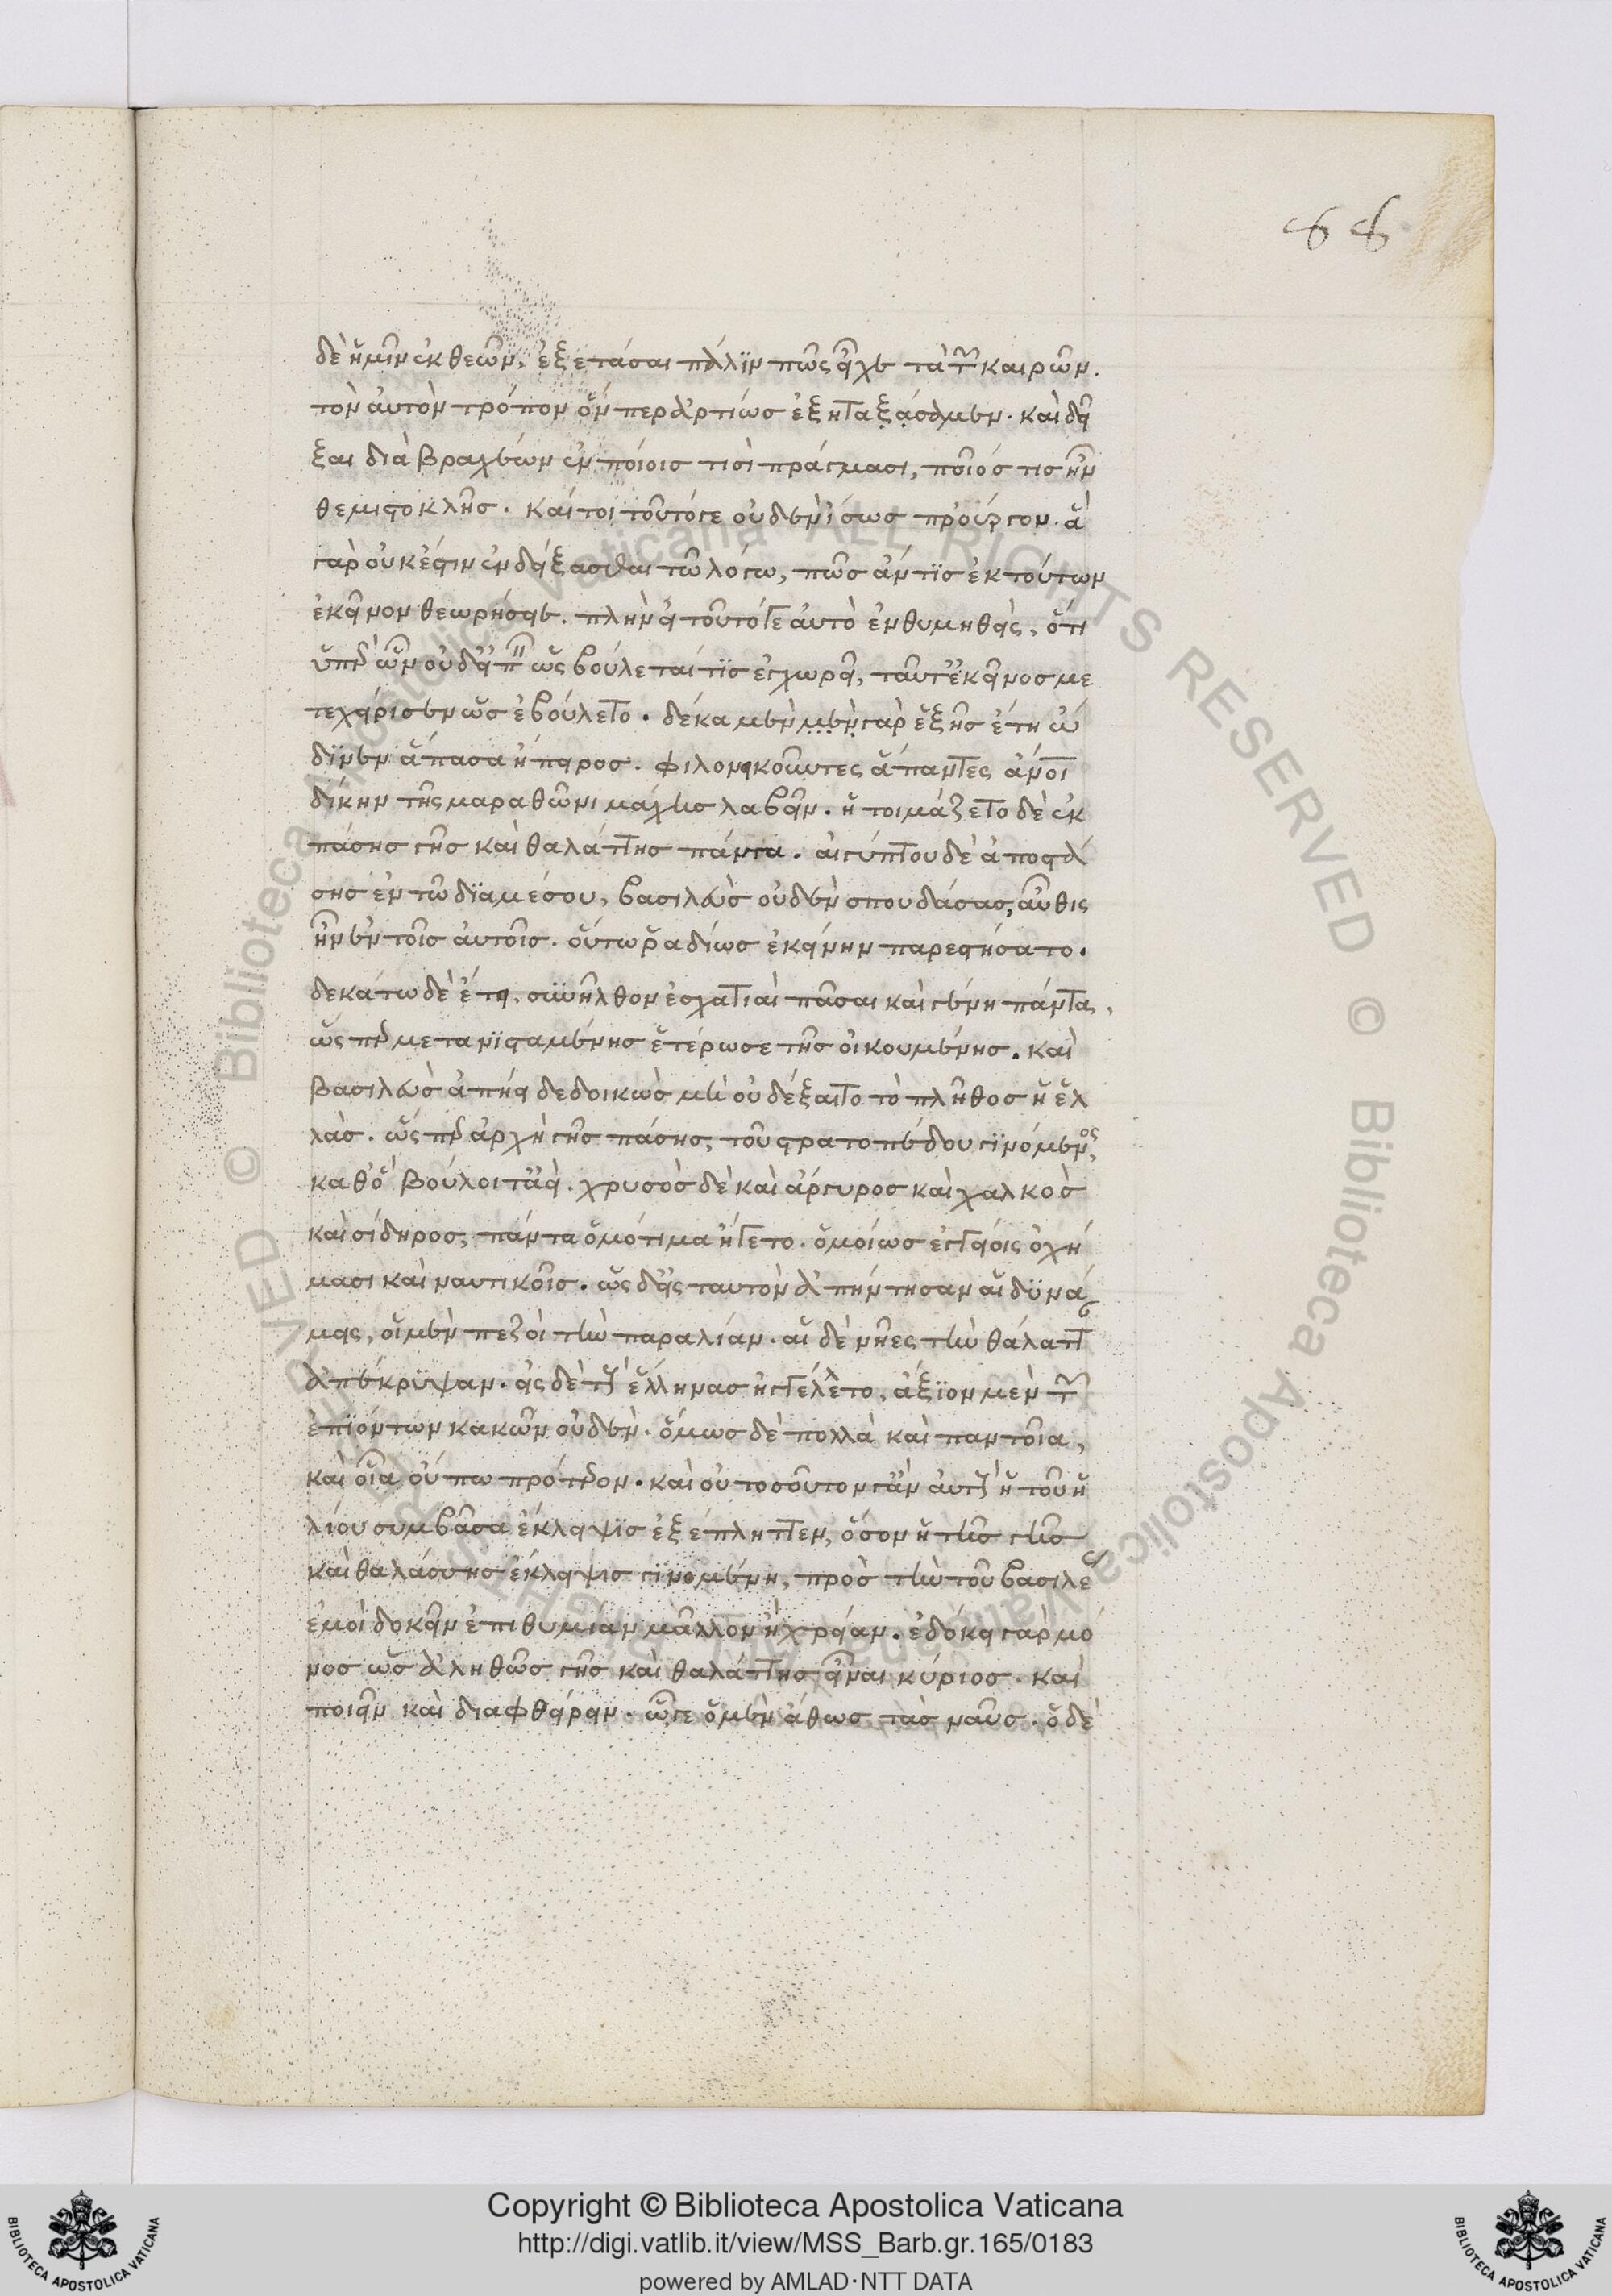 66
δὲ ἡμῖν ἐκ θεῶν, ἐξετάσαι πάλϊν πῶς εἶχε τὰ τῶν καιρῶν.
τὸν αὐτὸν τρόπον ὅν περ ἀρτίως ἐξηταξάσαμεν. καὶ δεῖ
ξαι διὰ βραχέων ἐν ποίοις τισὶ πράγμασι, ποῖός τις ἦν
θεμιστοκλῆς. καίτοι τοῦτό γε οὐδὲν ἴσως προὔργον. ἃ
γὰρ οὐκ ἔστιν ἐνδείξασθαι τῶ λόγω, πῶς ἄν τϊς ἐκ τούτων
ἐκεῖνον θεωρήσειε. πλὴν εἰ τοῦτό γε αὐτὸ ἐνθυμηθεὶς, ὅτι
ὑπὲρ ὧν οὐδ' εἰπεῖν ὡς βούλεταί τϊς ἐγχωρεῖ, ταῦτ' ἐκεῖνος με
τεχείρισεν ὡς ἐβούλετο. δέκα μὲν μὲν γὰρ ἑξῆς ἔτη ὤ
δϊνεν ἅπασα ἤπειρος. φιλονεικοῦντες ἅπαντες ἄνοι
δίκην τῆς μαραθῶνι μάχης λαβεῖν. ἡτοιμάζετο δὲ ἐκ
πάσης γῆς καὶ θαλάττης πάντα. αἰγύπτου δὲ ἀποστά
σης ἐν τῶ δϊαμέσου, βασιλεὺς οὐδὲν σπουδάσας, αὖθις
ἦν ἐν τοῖς αὐτοῖς. οὕτω ῥαδίως ἐκείνην παρεστήσατο.
δεκάτω δὲ ἔτει, συνῆλθον ἐσχατιαὶ πᾶσαι καὶ γένη πάντα,
ὥσπερ μετανϊσταμένης ἑτέρωσε τῆς οἰκουμένης. καὶ
βασιλεὺς ἀπήει δεδοικὼς μὴ οὐ δέξαιτο τὸ πλῆθος ἡ ἑλ
λὰς. ὥσπερ ἀρχὴ γῆς πάσης, τοῦ στρατοπέδου γϊνόμενος,
καθ' ὃ βούλοιτ' ἀεὶ. χρυσὸς δὲ καὶ ἄργυρος καὶ χαλκὸς
καὶ σίδηρος, πάντα ὁμότιμα ἤγετο. ὁμοίως ἐγγείοις ὀχή
μασι καὶ ναυτικοῖς. ὡς δ' εἰς ταυτὸν ἀπήντησαν αἱ δϋνά
μεις, οἱ μὲν πεζοὶ τὴν παραλίαν. αἱ δὲ νῆες τὴν θάλατταν
ἀπέκρϋψαν. εἰς δὲ τοὺς ἕλληνας ἠγγέλλετο, ἄξϊον μὲν τῶν
ἐπϊόντων κακῶν οὐδὲν. ὅμως δὲ πολλὰ καὶ παντοῖα,
καὶ οἷα οὔπω πρότερον. καὶ οὐ τοσοῦτον γ' ἂν αὐτοὺς ἡ τοῦ ἡ
λίου συμβᾶσα ἔκλειψϊς ἐξέπληττεν, ὅσον ἡ τῆς γῆς
καὶ θαλάσσης ἔκλειψις γϊνομένη, πρὸς τὴν τοῦ βασιλέως
ἐμοὶ δοκεῖν ἐπιθυμίαν μᾶλλον ἢ χρείαν. ἐδόκει γὰρ μό
νος ὡς ἀληθῶς γῆς καὶ θαλάττης εἶναι κύριος. καὶ
ποιεῖν καὶ διαφθείρειν. ὥστε ὁ μὲν ἄθως τὰς ναῦς. ὁ δὲ
Copyright © Biblioteca Apostolica Vaticana
http://digi.vatlib.it/view/MSS_Barb.gr.165/0183
powered by AMLAD·NTT DATA